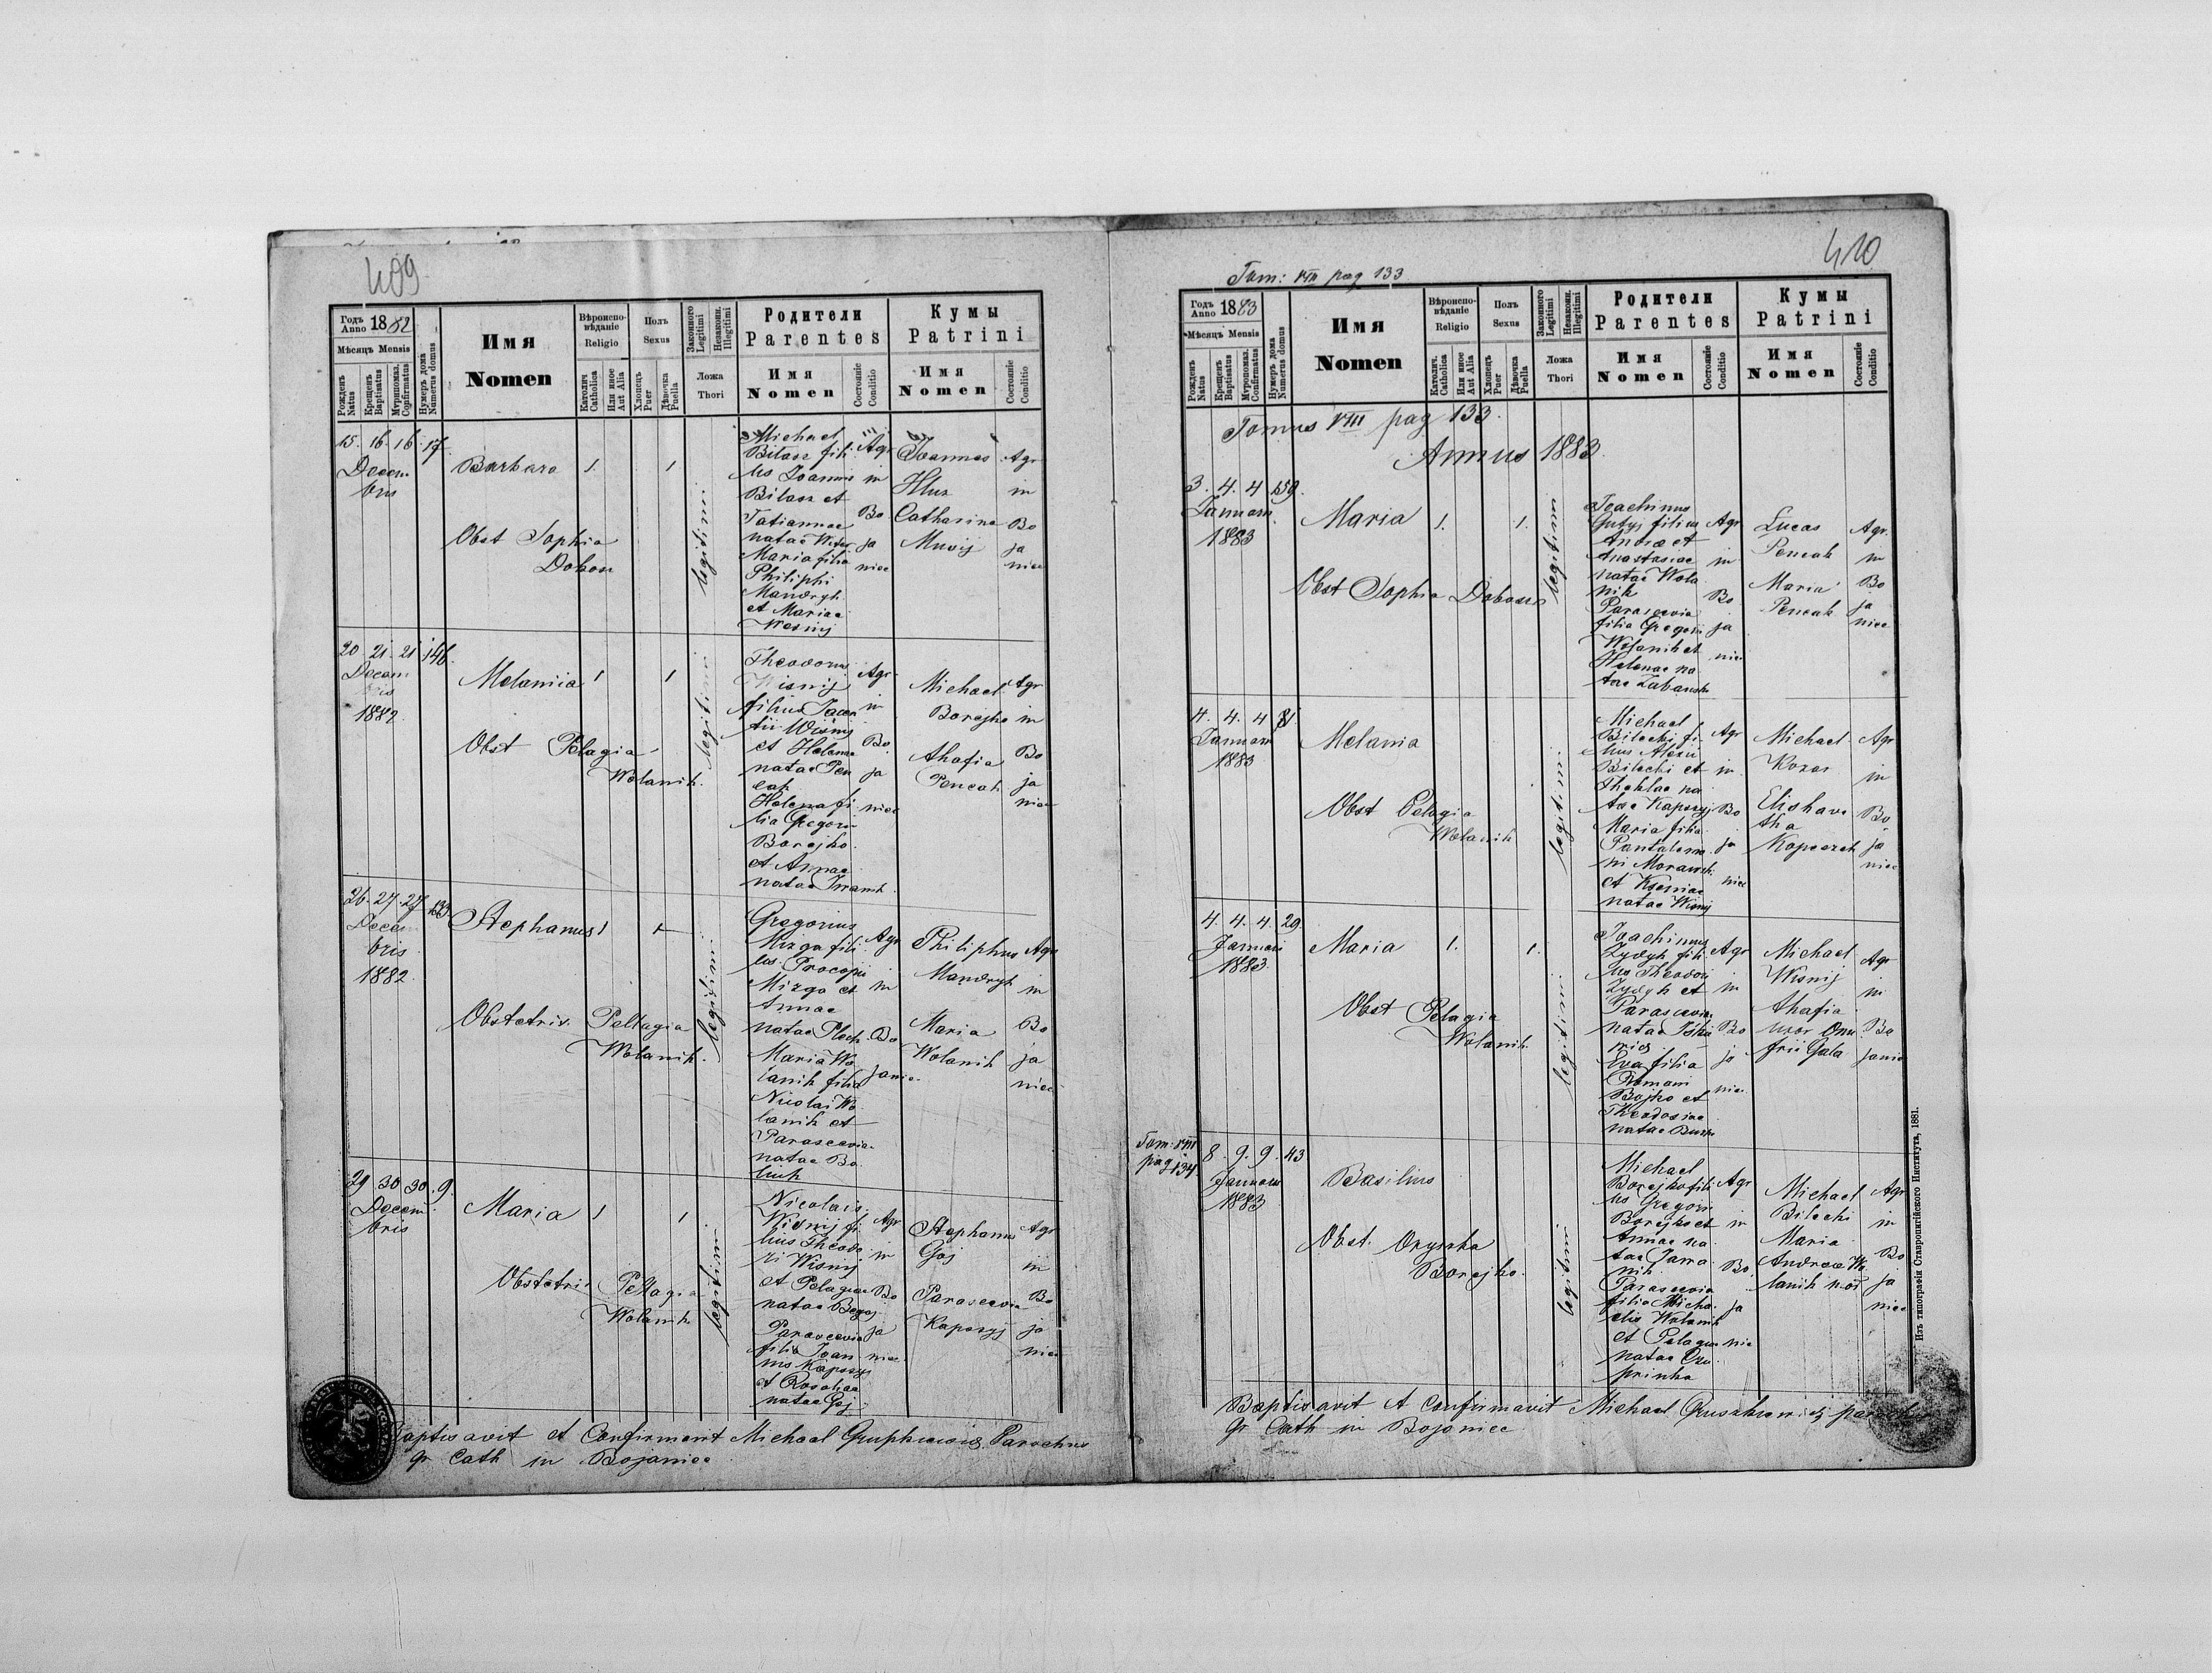 409
Годъ Anno 1882
Мѣсяцъ Mensis
Рожденъ Natus
Крещенъ Baptisatus
Мѵропомаз. Confirmatus
Нумеръ дома Numerus domus
Имя
Nomen
Вѣроиспо-
вѣданіе
Religio
Католич Catholica
Или иное Aut Alia
Полъ
Sexus
Хлопецъ Puer
Дѣвочка Puella
Законного Legitimi
Незаконн. Illegitimi
Ложа
Thori
Родители
Parentes
Имя
Nomen
Состояніе Conditio
Кумы
Patrini
Имя
Nomen
Состояніе Conditio
15. 16. 16. 17.
Decem
bris
Barbara 1. 1
Obst Sophia
legitimi
Michael
Bilasz fili
us Joannis
Bilasz et
Tatiannae
natae
Maria filia
Philiphi
Mandryk
et Mariae
Wesnij
Agr
in
Bo
ja
niec
Joannes
Catharina
Agr
in
Bo
ja
niec
20. 21. 21. 146.
Decem
bris
1882.
Melaniia 1 1
Obst Pelagia
Wolanik.
legitimi
Theodorus
Wisnij
filius Jacen
tii Wisnij
et Helenae
natae Pen
cak
Helena fi
lia Gregorii
Borejko
et Annae
natae
Agr
in
Bo
ja
niec
Michael
Borejko
Ahafia
Pencak
Agr
in
Bo
ja
niec
26. 27. 27. 133.
Decem
bris
1882.
Stephanus 1 1
Obstetrix Peltagia
Wolanik.
legitimi
Gregorius
Mizga fili
us Procopii
Mizga et
Annae
natae
Maria Wo
lanik filia
Nicolai Wo
lanik et
Parascevia
natae Bo
Agr
in
Bo
janie
Philiphus
Mandryk
Maria
Wolanik
Agr
in
Bo
ja
niec
29. 30. 30. 9.
Decem
bris
Maria 1 1
Obstetrix Peltagia
Wolanik
legitimi
Nicolais
Wisnij fi
lius Theodo
ri Wisnij
et Pelagiae
natae
Parascevia
filia Joan
nis Kapszyj
et Rosaliae
natae Goj
Agr
in
Bo
ja
niec
Stephanus
Goj
Parascevia
Kapszyj
Agr
in
Bo
ja
niec
Baptisavit et Confirmavit Michael Parochus
gr Cath in Bojaniec
410
Tom: VIII pag 133
Годъ Anno 1883
Мѣсяцъ Mensis
Рожденъ Natus
Крещенъ Baptisatus
Мѵропомаз. Confirmatus
Нумеръ дома Numerus domus
Имя
Nomen
Вѣроиспо-
вѣданіе
Religio
Католич. Catholica
Или иное Aut Alia
Полъ
Sexus
Хлопецъ Puer
Дѣвочка Puella
Законного Legitimi
Незаконн. Illegitimi
Ложа
Thori
Родители
Parentes
Имя
Nomen
Состояніе Conditio
Кумы
Patrini
Имя
Nomen
Состояніе Conditio
Tomus VIII pag 133.
Annus 1883
3. 4. 4 159.
Januarii
1883
Maria 1. 1.
Obst Sophia
legitimi
Joachimus
filius
Andreae et
Anastasiae
natae Wola
nik
Parascevia
filia Gregorii
Wolanik et
Helenae na
tae
Agr
in
Bo
ja
niec
Lucas
Pencak
Maria
Pencak
Agr.
in
Bo
ja
niec
4. 4. 4 81.
Januarii
1883
Melania
Obst Pelagia
Wolanik
legitimi
Michael
Bilecki fi
lius Alexii
Bilecki et
Theklae na
tae Kapszyj
Maria filia
Pantalemo
ni
et Kseniae
natae Wisnij
Agr
in
Bo
ja
niec
Michael
Kozar
Elishave
tha
Agr
in
Bo
ja
niec
4. 4. 4. 29
Januarii
1883.
Maria 1. 1.
Obst Pelagia
Wolanik
legitimi
Joachimus
Zydyk fili
us Theodori
Zydyk et
Parascevia
natae
Eva filia
Romani
Bojko et
Theodosiae
natae
Agr
in
Bo
ja
niec
Michael
Wisnij
Ahafia
uxor Onu
frii Gala
Agr
in
Bo
janie
Tom: VIII
pag 134
8. 9. 9. 43
Januarii
1883
Basilius
Obst. Oryszka
Borejko.
legitimi
Michael
Borejko fili
us Gregorii
Borejko et
Annae na
tae
Parascevia
filia Micha
elis Wolanik
et Pelagiae
natae
Agr
in
Bo
ja
nie
Michael
Bilecki
Maria
Andreae Wo
lanik
Agr
in
Bo
ja
niec
Baptisavit et Confirmavit Michael parochus
gr Cath in Bojaniec
Изъ типографіи Ставропигійского Института, 1881.